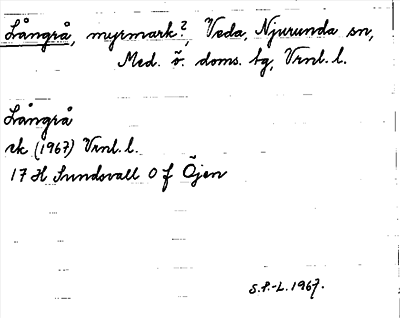 Långrå, myrmark?, Veda, Njurunda sn,
Med. ö. doms. bg, Vrnl. l.
Långrå
ek (1967) Vrnl. l.
17 H Sundsvall 0 f Öjen
S.P.-L. 1967.